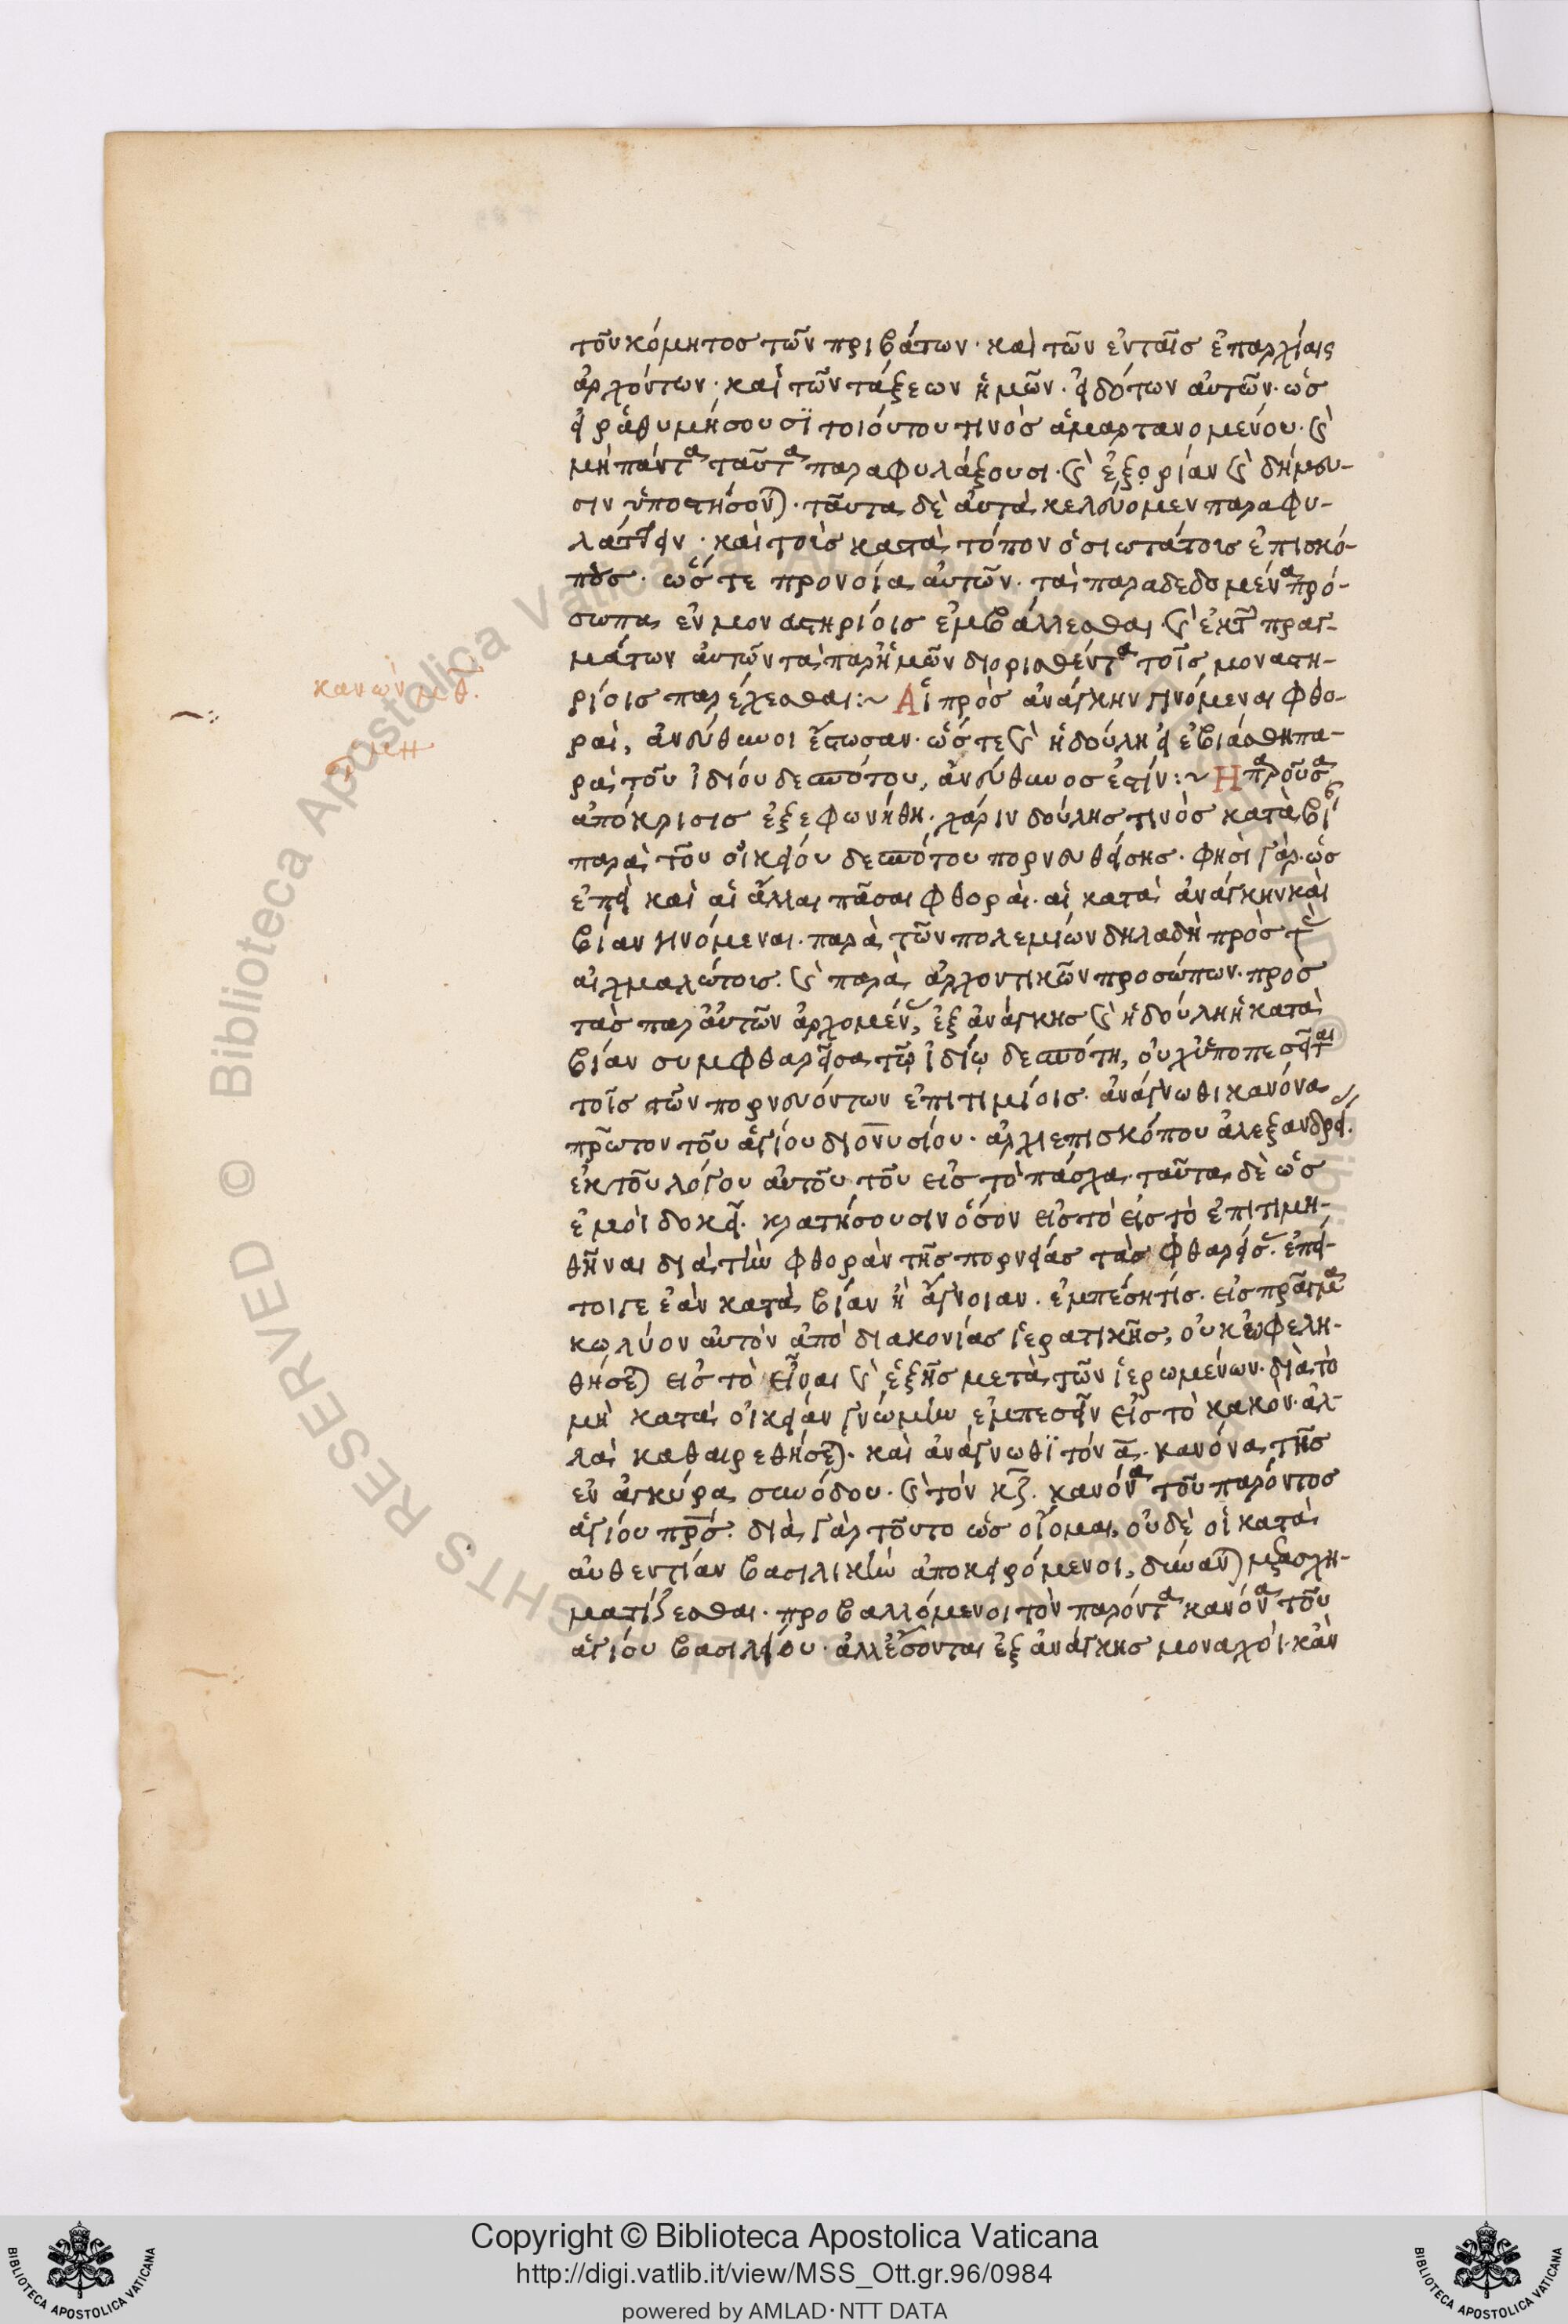 τοῦ κόμητος τῶν πριβάτων· καὶ τῶν ἐν ταῖς ἐπαρχίαις
ἀρχόντων· καὶ τῶν τάξεων ἡμῶν· εἰδότων αὐτῶν· ὡς
εἰ ῥαθυμήσουσϊ τοιούτου τινὸς ἁμαρτανομένου· καὶ
μὴ πάντα ταῦτα παραφυλάξουσι· καὶ ἐξορίαν καὶ δήμευ-
σιν ὑποστήσονται· ταῦτα δὲ αὐτὰ κελεύομεν παραφυ-
λάττειν· καὶ τοῖς κατὰ τόπον ὁσιωτάτοις ἐπισκό-
ποις· ὥστε προνοία αὐτῶν· τὰ παραδεδομένα πρό-
σωπα ἐν μοναστηρίοις ἐμβάλλεσθαι καὶ ἐκ τῶν πραγ-
μάτων αὐτῶν τὰ παρ' ἡμῶν διορισθέντα τοῖς μοναστη-
ρίοις παρέχεσθαι:~ Αἱ πρὸς ἀνάγκην γινόμεναι φθο-
ραὶ, ἀνεύθυνοι ἔστωσαν· ὥστε καὶ ἡ δούλη εἰ ἐβιάσθη πα-
ρὰ τοῦ ἰδίου δεσπότου, ἀνεύθυνος ἐστίν:~ Η παροῦσα
ἀπόκρισις ἐξεφωνήθη· χάριν δούλης τινὸς κατὰ βί
παρὰ τοῦ οἰκείου δεσπότου πορνευθείσης· φησὶ γὰρ· ὡς
ἐπεὶ καὶ αἱ ἄλλαι πᾶσαι φθοραὶ· αἱ κατὰ ἀνάγκην καὶ
βίαν γινόμεναι· παρὰ τῶν πολεμίων δηλαδὴ πρὸς τοὺς
αἰχμαλώτοις· καὶ παρὰ ἀρχοντικῶν προσώπων· πρὸς
τὰς παρ' αὐτῶν ἀρχομένας, ἐξ ἀνάγκης καὶ ἡ δούλη ἡ κατὰ
βίαν συμφθαρεῖσα τῷ ἰδίῳ δεσπότη, οὐχ ὑποπεσεῖται
τοῖς τῶν πορνευόντων ἐπιτιμίοις· ἀνάγνωθι κανόνα
πρῶτον τοῦ ἁγίου διονυσίου· ἀρχιεπισκόπου ἀλεξανδρείας·
ἐκ τοῦ λόγου αὐτοῦ τοῦ εἰς τὸ πάσχα· ταῦτα δὲ ὡς
ἐμοὶ δοκεῖ· κρατήσουσιν ὅσον εἰς τὸ εἰς τὸ ἐπιτιμη-
θῆναι διὰ τὴν φθορὰν τῆς πορνείας τὰς φθαρείσας· ἐπεί-
τοιγε ἐὰν κατὰ βίαν ἢ ἄγνοιαν· ἐμπέση τίς· εἰς πρᾶγμα
κωλύον αὐτὸν ἀπὸ διακονίας ἱερατικῆς, οὐκ ὠφελη-
θήσεται εἰς τὸ εἶναι καὶ ἑξῆς μετὰ τῶν ἱερωμένων· διὰ τὸ
μὴ κατὰ οἰκείαν γνώμην ἐμπεσεῖν εἰς τὸ κακὸν· ἀλ-
λὰ καθαιρεθήσεται· καὶ ἀνάγνωθϊ τόν α· κανόνα τῆς
ἐν ἀγκύρα συνόδου· καὶ τὸν κζ· κανόνα τοῦ παρόντος
ἁγίου πρς· διὰ γὰρ τοῦτο ὡς οἶομαι, οὐδὲ οἱ κατὰ
αὐθεντίαν βασιλικὴν ἀποκειρόμενοι, δύνανται μετασχη-
ματίζεσθαι· προβαλλόμενοι τὸν παρόντα κανόνα τοῦ
ἁγίου βασιλείου· ἀλλ' ἔσονται ἐξ ἀνάγκης μοναχοὶ· κἂν
κανὼν μθ.
Copyright © Biblioteca Apostolica Vaticana
http://digi.vatlib.it/view/MSS_Ott.gr.96/0984
powered by AMLAD·NTT DATA
BIBLIOTECA APOSTOLICA VATICANA
BIBLIOTECA APOSTOLICA VATICANA